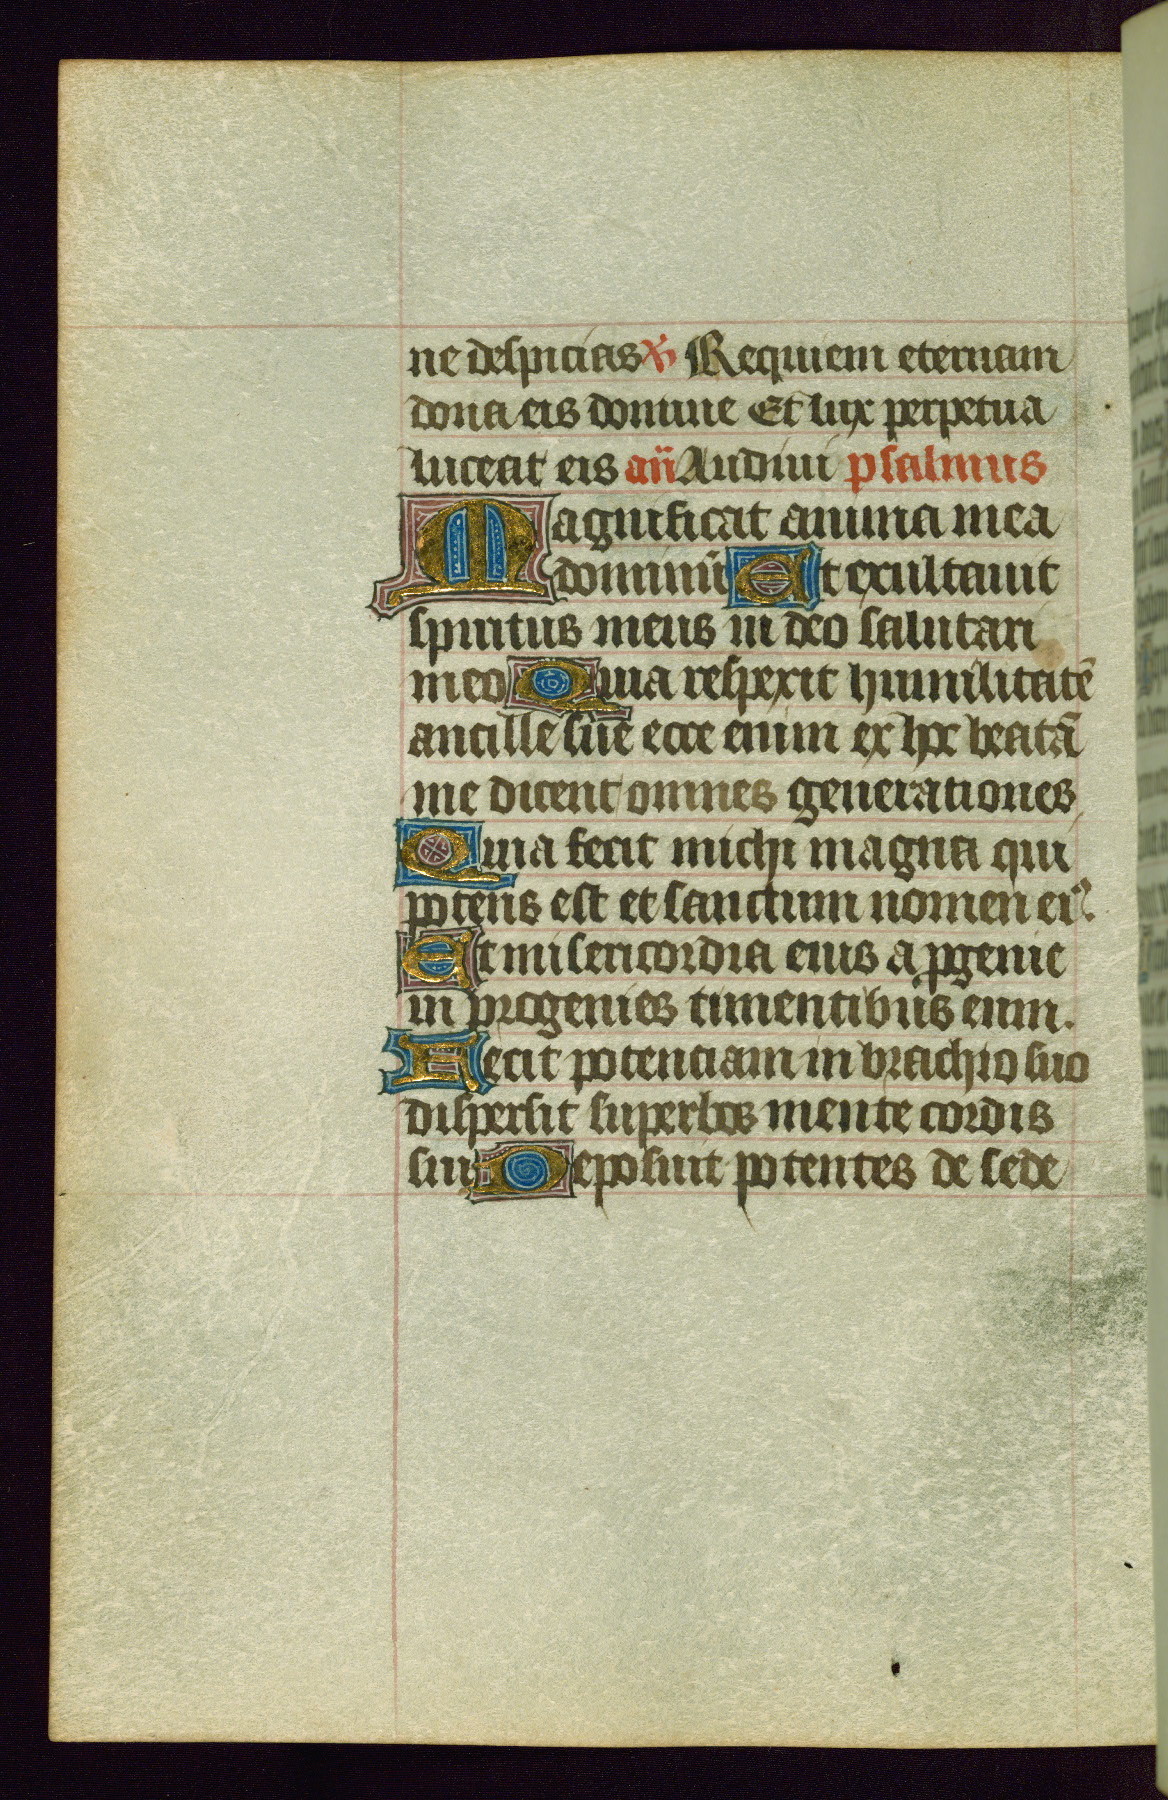 ne despicias℣ Requiem eternam
dona eis domine Et lux perpetua
luceat eis añ Audiui psalmus
Magnificat anima mea
dominū Et exultauit
spiritus meus in deo salutari
meo Quia respexit humilitatē
ancille sue ecce enim ex hoc beatā
me dicent omnes generationes
Quia fecit michi magna qui
potens est et sanctum nomen eiꝰ.
Et misericordia eius a ꝓgenie
in progenies timentibus eum.
Fecit potentiam in brachio suo
dispersit superbos mente cordis
sui Deposuit potentes de sede